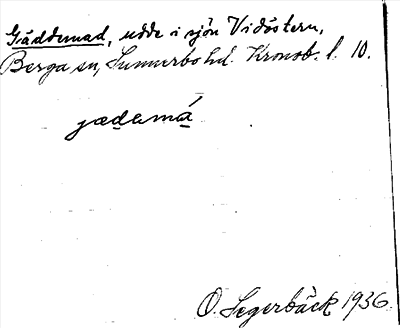 Gäddemad, udde i sjön Vidöstern,
Berga sn, Sunnerbo hd. Kronob. l. 10.
jædemá
O. Segerbäck 1936.